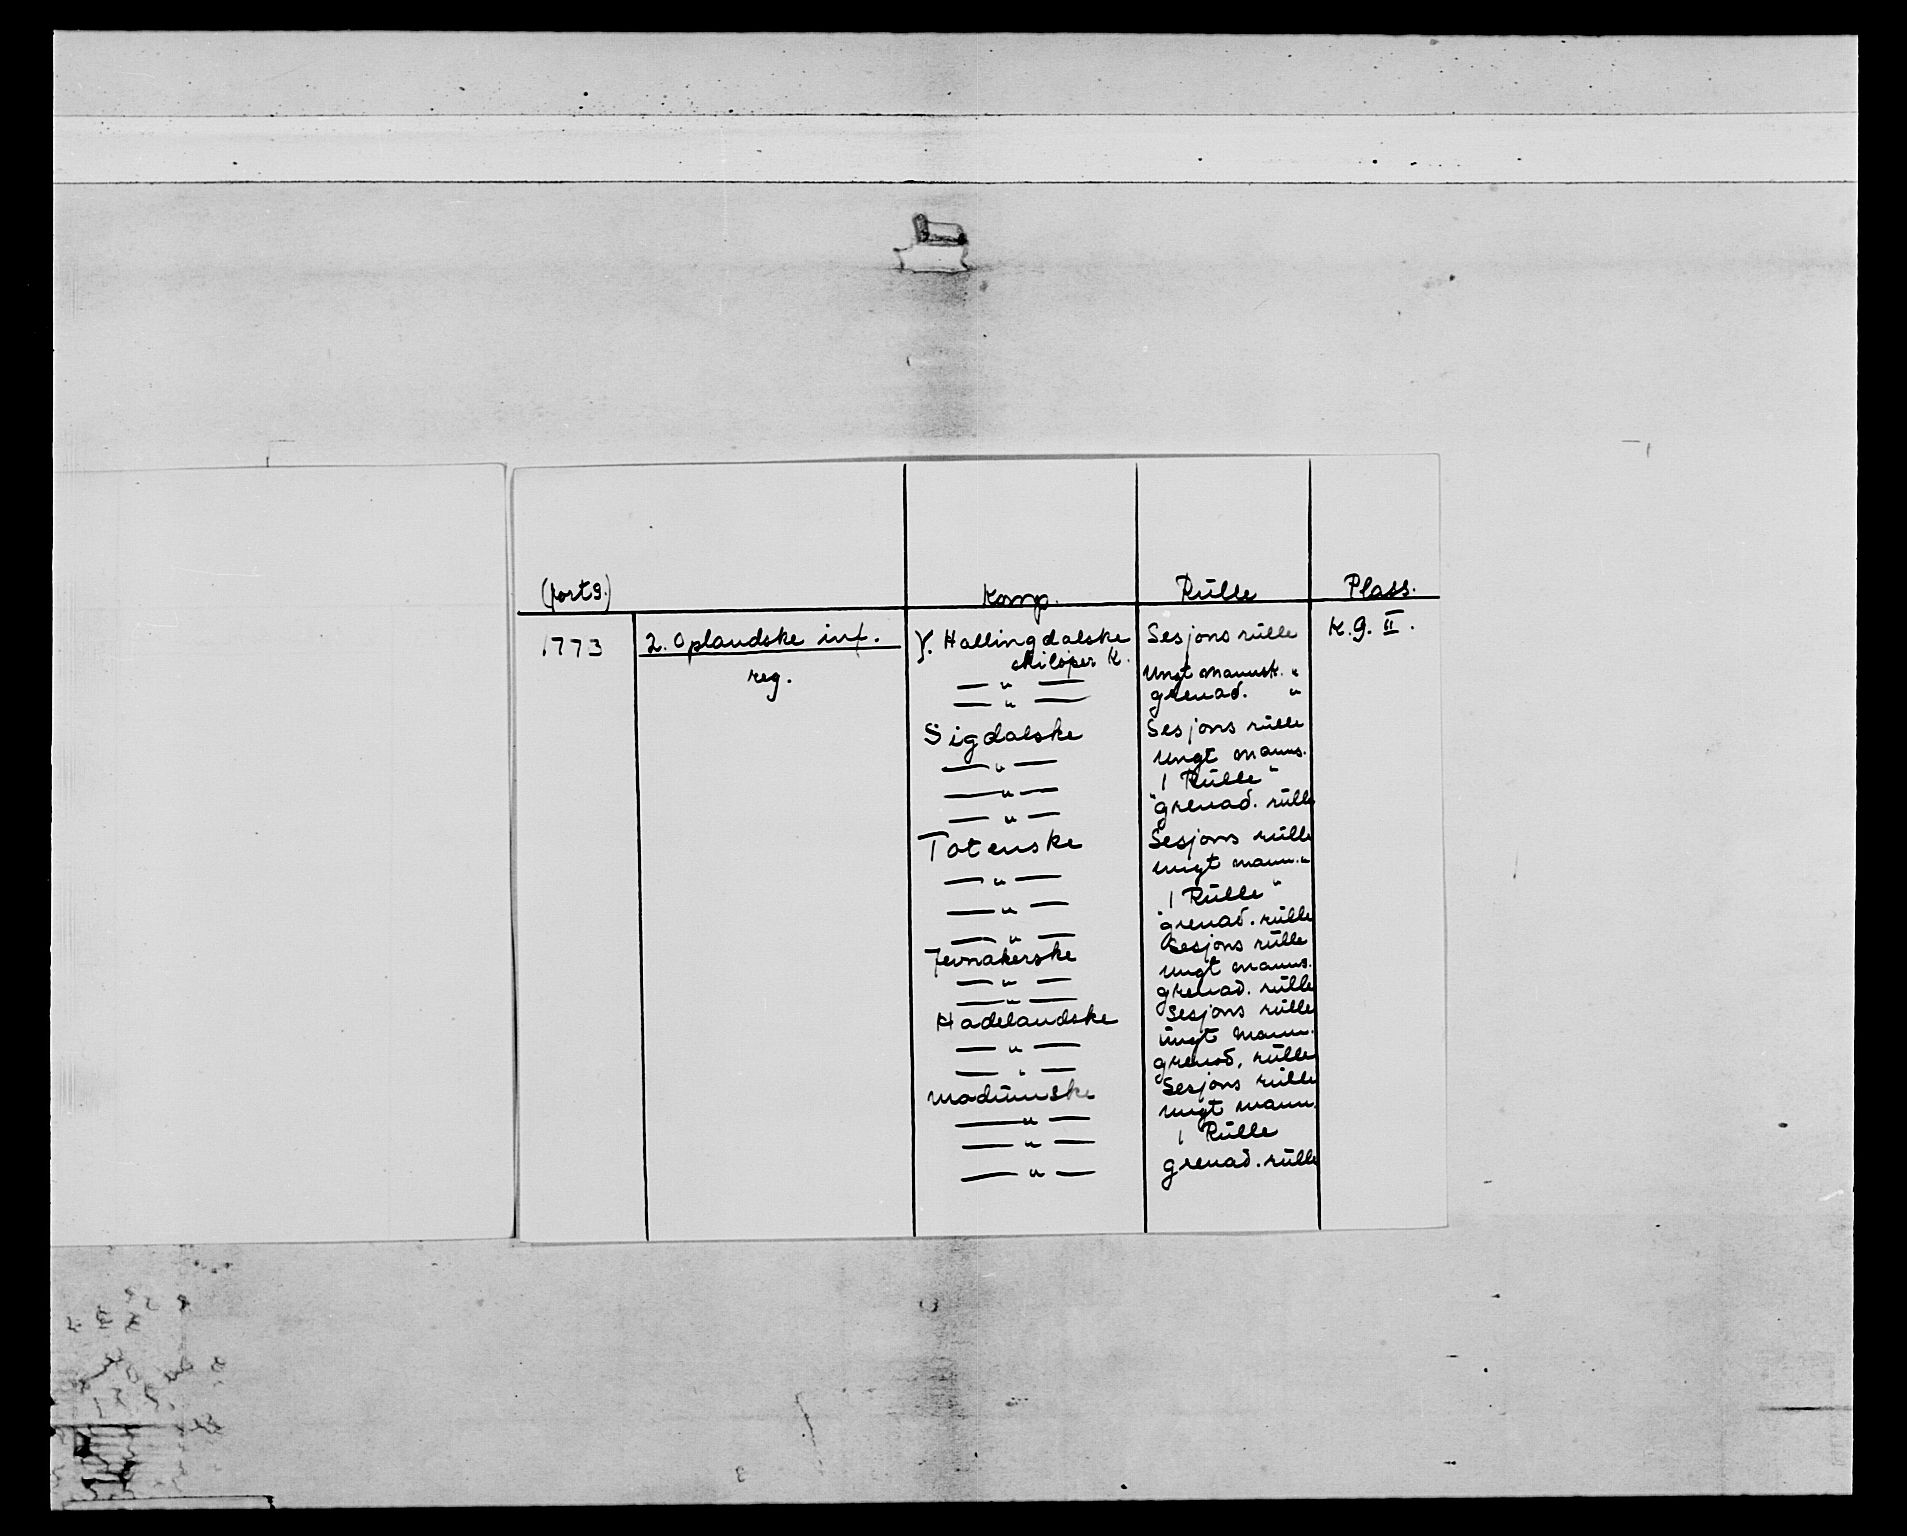 (forts.) Komp. Rülle Plass.
1773 2. Oplandske inf. Hallingdalske Sesjons rülle K.g. II.
reg. skiløper K.
— " — Ungt mannsk. "
— " — grenad. "
Sigdalske Sesjons rülle
— " — ungt manns.
— " — 1 Rülle "
— " — "grenad. rülle
Totenske Sesjons rülle
— " — ungt mann. "
— " — 1 Rülle "
— " — "grenad. rülle
Jevnakerske Sesjons rülle
— " — ungt manns.
— " — grenad. rülle
Hadelandske Sesjons rülle
— " — ungt mann.
— " — grenad. rülle
Modumske Sesjons rülle
— " — ungt mann.
— " — 1 Rülle
— " — grenad. rülle